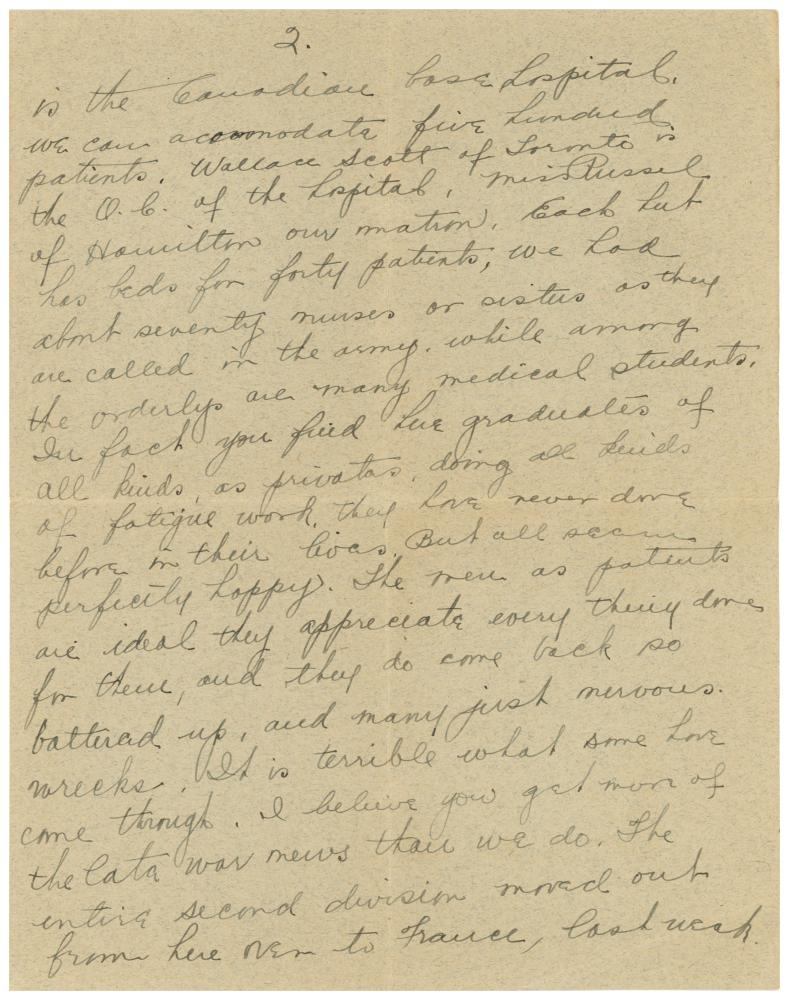 2.
is the Canadian base hospital.
we can acoomodate five hundred
patients. Wallace Scott of Toronto is
the O.C. of the hospital, miss Russel
of Hamilton our matron. Each hut
has beds for forty patients, we had
about seventy nurses or sisters as they
are called in the army. while among
the orderlys are many medical students.
In fact you find here graduates of
all kinds, as privates, doing all kinds
of fatigue work, they have never done
before in their lives. But all seem
perfectly happy. The men as patients
are ideal they appreciate every thing done
for them, and they do come back so
battered up, and many just nervous
wrecks. It is terrible what some have
come through. I believe you get more of
the late war news than we do. The
entire second division moved out
from here over to France, last week.